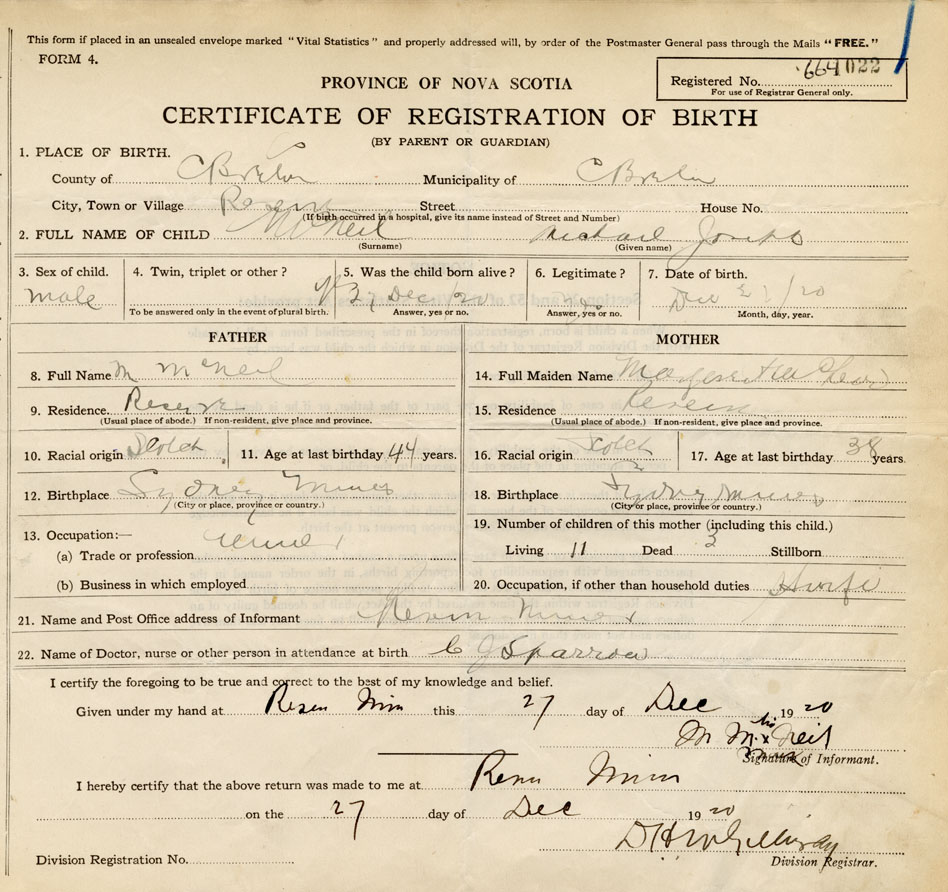 This form if placed in an unsealed envelope marked "Vital Statistics" and properly addressed will, by order of the Postmaster General pass through the Mails "FREE."
FORM 4.
Registered No. 664022
For use of Registrar General only.
PROVINCE OF NOVA SCOTIA
CERTIFICATE OF REGISTRATION OF BIRTH
(BY PARENT OR GUARDIAN)
1. PLACE OF BIRTH.
County of C Breton Municipality of C Breton
City, Town or Village Street House No.
(If birth occurred in a hospital, give its name instead of Street and Number)
2. FULL NAME OF CHILD McNeil Michael Joseph
(Surname) (Given name)
3. Sex of child. 4. Twin, triplet or other ? 5. Was the child born alive ? 6. Legitimate ? 7. Date of birth.
male Dec /20 Dec /20
To be answered only in the event of plural birth. Answer, yes or no. Answer, yes or no. Month, day, year.
FATHER MOTHER
8. Full Name M McNeil 14. Full Maiden Name
9. Residence Reserve 15. Residence Reserve
(Usual place of abode.) If non-resident, give place and province. (Usual place of abode.) If non-resident, give place and province.
10. Racial origin Scotch 11. Age at last birthday 44 years. 16. Racial origin Scotch 17. Age at last birthday 38 years.
12. Birthplace Sydney Mines 18. Birthplace Sydney Mines
(City or place, province or country.) (City or place, province or country.)
13. Occupation:— 19. Number of children of this mother (including this child.)
(a) Trade or profession Living 11 Dead 3 Stillborn
(b) Business in which employed 20. Occupation, if other than household duties
21. Name and Post Office address of Informant Mines
22. Name of Doctor, nurse or other person in attendance at birth Sparrow
I certify the foregoing to be true and correct to the best of my knowledge and belief.
Given under my hand at this 27 day of Dec 1920
M McNeil
his
x
mark
Signature of Informant.
I hereby certify that the above return was made to me at
on the 27 day of Dec 1920
Division Registration No. Division Registrar.